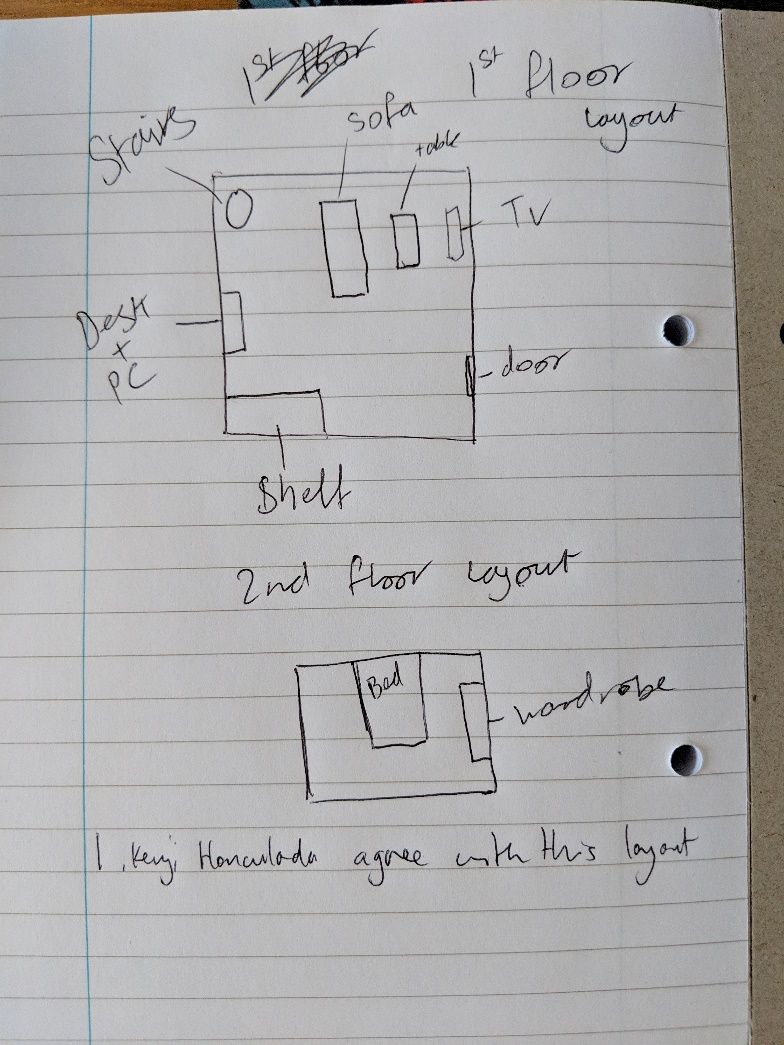 1st floor
1st floor
layout
Stairs
sofa
table
TV
Desk
+
PC
door
Shelf
2nd floor layout
Bed
wardrobe
I, Kenji Honculada agree with this layout